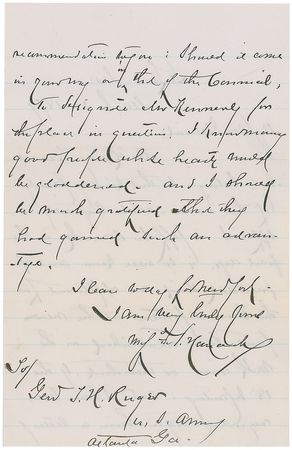 recommendation to you: Should it come
in your way or in that of the Council,
to designate Mr Kennedy for
the place in question. I know many
good people whose hearts would
be gladdened. and I should
be much gratified that they
had gained such an advan-
tage.
I leave today for New York.
I am very truly yours
Winf. S. Hancock
To/
Genl T. H. Ruger
U. S. Army
Atlanta Ga.